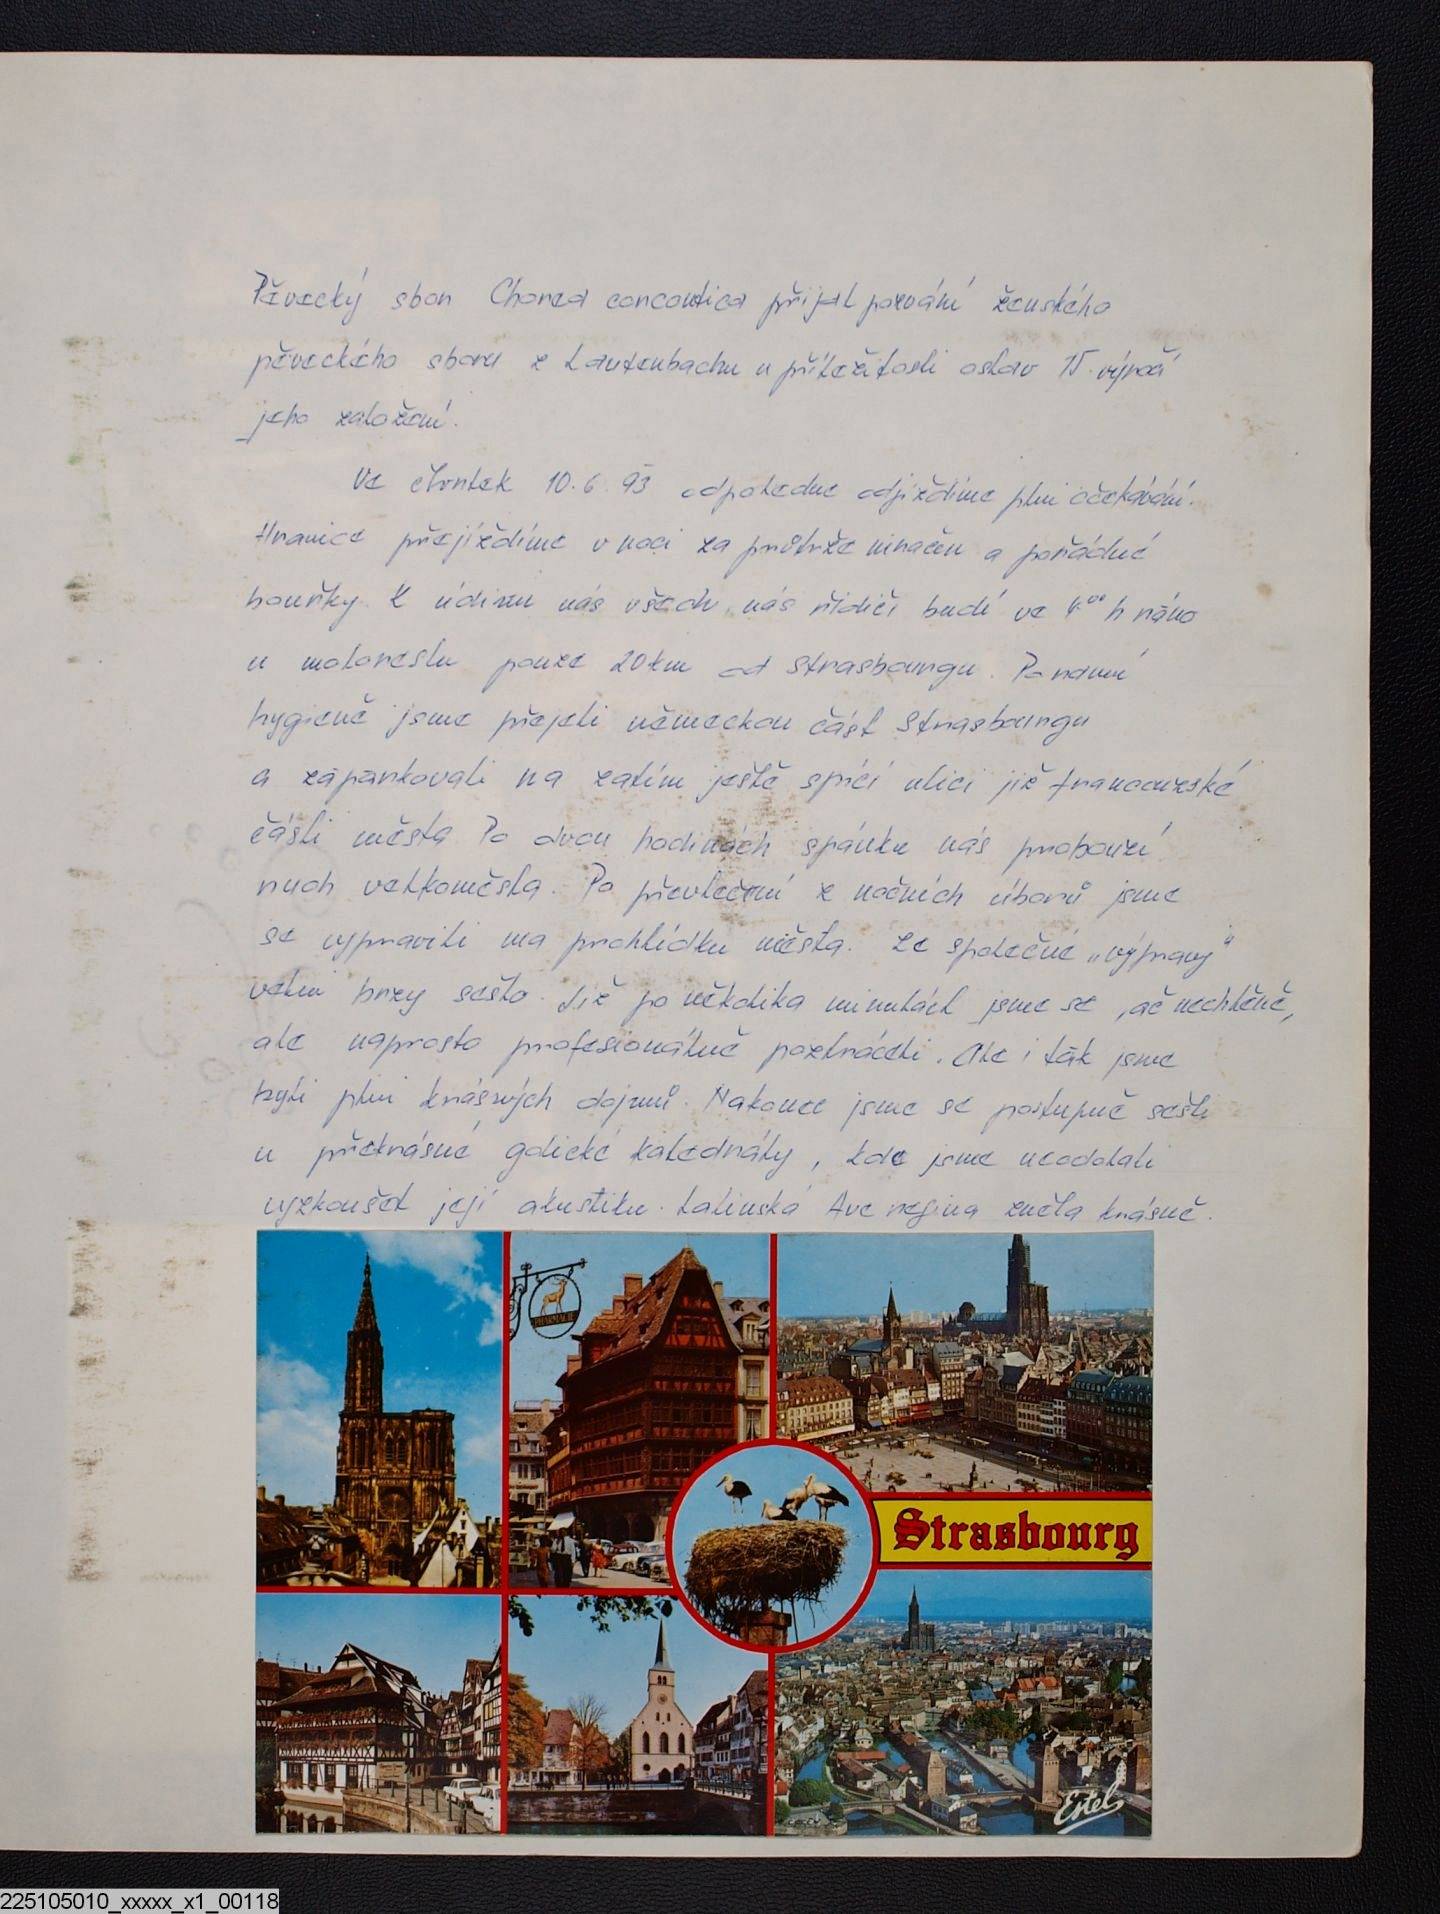 Pěvecký sbor Chorea corcontica přijal pozvání ženského
pěveckého sboru z Lautenbachu u příležitosti oslav 15. výročí
jeho založení.
Ve čtvrtek 10. 6. 93 odpoledne odjíždíme plni očekávání.
Hranice přejíždíme v noci za průtrže mračen a pořádné
bouřky. K údivu nás všech, nás řidiči budí ve 4.00 h ráno
u motorestu pouze 20 km od Strasbourgu. Po ranní
hygieně jsme přejeli německou část Strasbourgu
a zaparkovali na zatím ještě spící ulici již francouzské
části města. Po dvou hodinách spánku nás probouzí
ruch velkoměsta. Po převlečení z nočních úborů jsme
se vypravili na prohlídku města. Ze společné „výpravy"
velmi brzy sešlo. Již po několika minutách jsme se, ač nechtěně,
ale naprosto profesionálně poztráceli. Ale i tak jsme
byli plni krásných dojmů. Nakonec jsme se postupně sešli
u překrásné gotické katedrály, kde jsme neodolali
vyzkoušet její akustiku. Latinská Ave regina zněla krásně.
PHARMACIE
Strasbourg
Estel
225105010_xxxxx_x1_00118